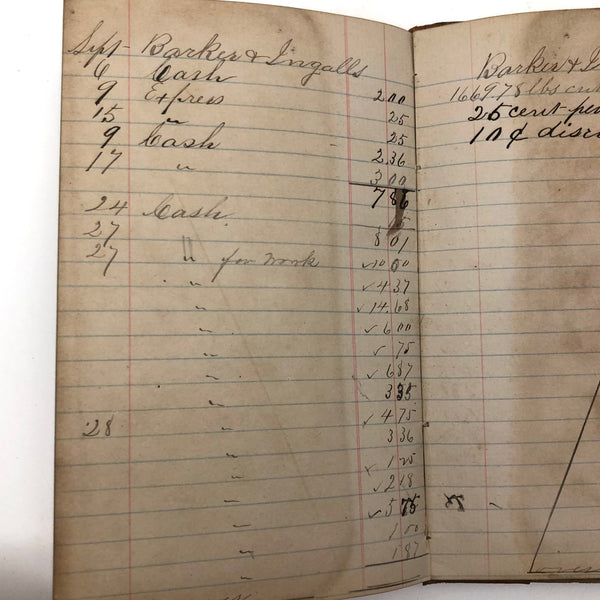 Sept - Barker & Ingalls
6 Cash 2.00
9 Express 25
15 " 25
9 Cash 2.36
17 " 3 00
7 86
24 Cash 15
27 8 01
27 " for work ✓10 00
" ✓4 37
" ✓14.68
" ✓6 00
" ✓ 75
" ✓6 87
" 3 35
" ✓4 75
28 " 3 36
" 1 25
" ✓2 18
" ✓5 75
" 1 50
" 1 87
Barker & I
166978 lbs
25 cent per
10 ¢ disc